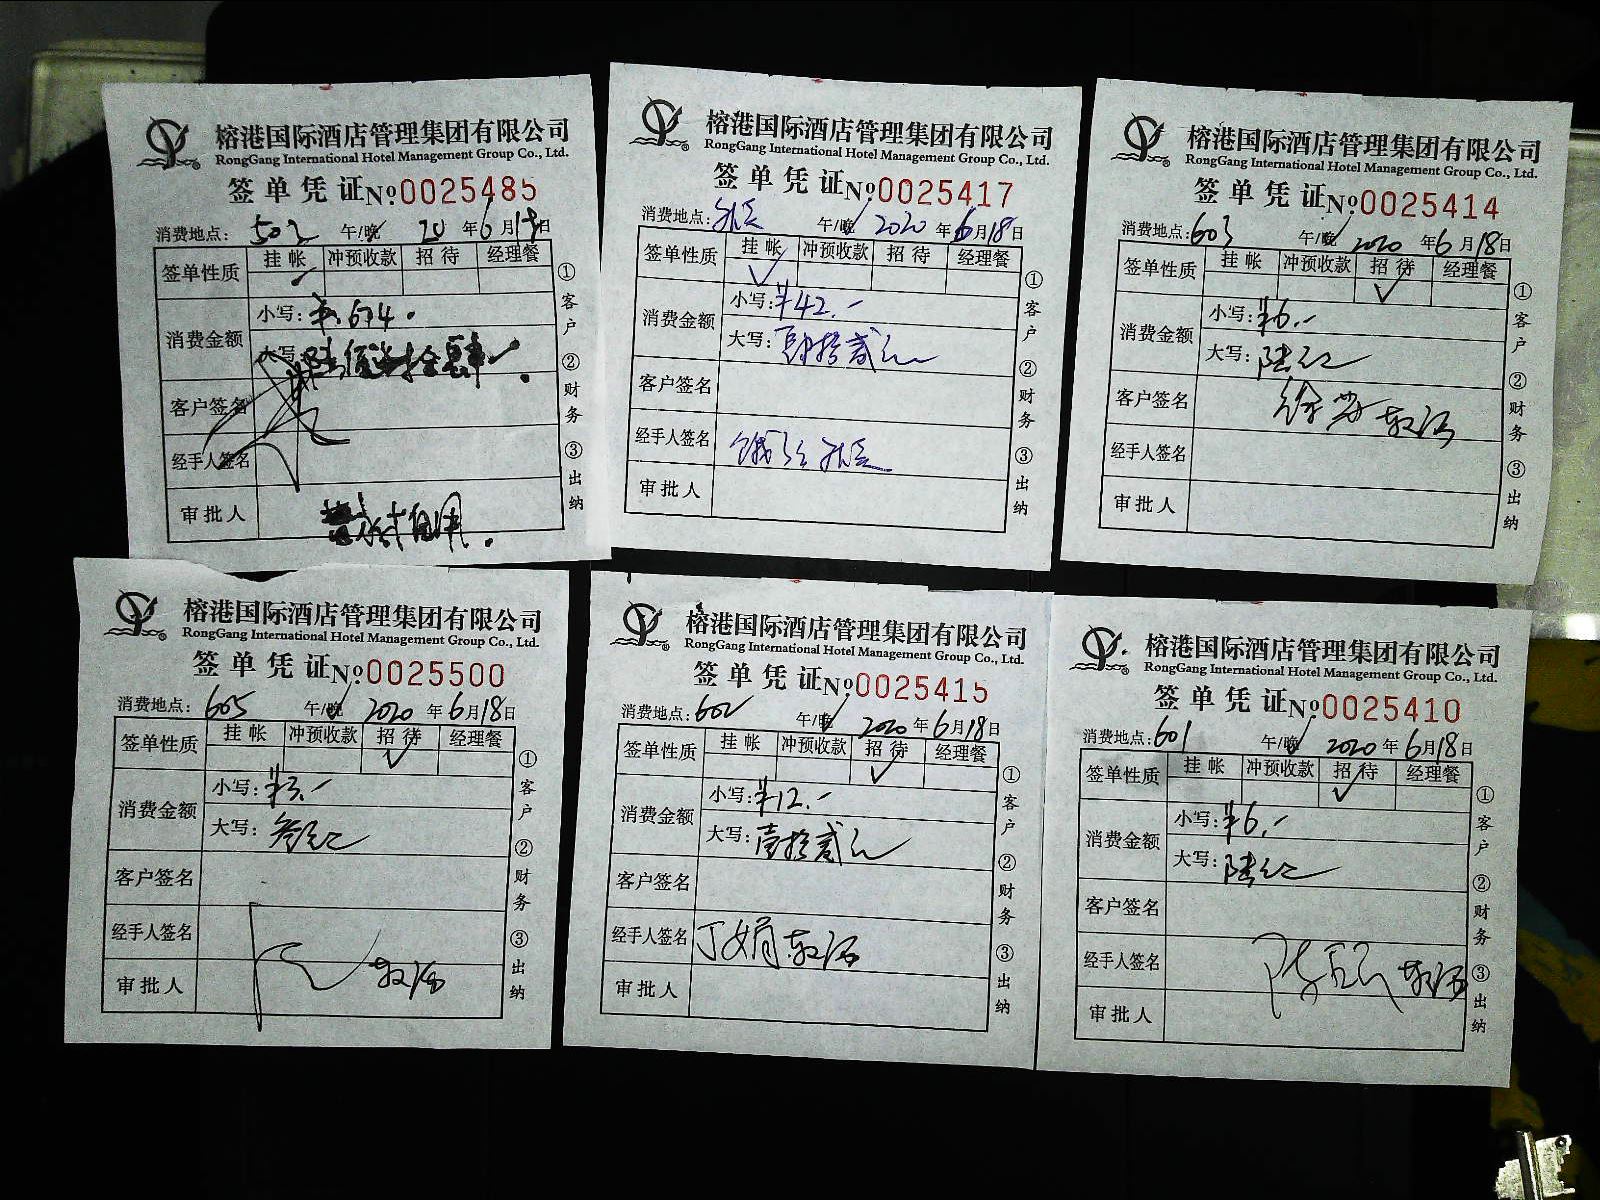 榕港国际酒店管理集团有限公司
RongGang International Hotel Management Group Co., Ltd.
签单凭证 No. 0025485
消费地点: 502 午/晚 20 年 6 月 日
签单性质 挂帐 冲预收款 招待 经理餐
消费金额 小写: ¥674.
大写: 陆佰柒拾肆
客户签名
经手人签名
审批人
①客户 ②财务 ③出纳
榕港国际酒店管理集团有限公司
RongGang International Hotel Management Group Co., Ltd.
签单凭证 No. 0025417
消费地点: 午/晚 2020 年 6 月 18 日
签单性质 挂帐 冲预收款 招待 经理餐
消费金额 小写: ¥42.-
大写: 肆拾贰元
客户签名
经手人签名
审批人
①客户 ②财务 ③出纳
榕港国际酒店管理集团有限公司
RongGang International Hotel Management Group Co., Ltd.
签单凭证 No. 0025414
消费地点: 603 午/晚 2020 年 6 月 18 日
签单性质 挂帐 冲预收款 招待 经理餐
消费金额 小写: ¥6.-
大写: 陆元
客户签名
经手人签名
审批人
①客户 ②财务 ③出纳
榕港国际酒店管理集团有限公司
RongGang International Hotel Management Group Co., Ltd.
签单凭证 No. 0025500
消费地点: 605 午/晚 2020 年 6 月 18 日
签单性质 挂帐 冲预收款 招待 经理餐
消费金额 小写: ¥3.-
大写: 叁元
客户签名
经手人签名
审批人
①客户 ②财务 ③出纳
榕港国际酒店管理集团有限公司
RongGang International Hotel Management Group Co., Ltd.
签单凭证 No. 0025415
消费地点: 602 午/晚 2020 年 6 月 18 日
签单性质 挂帐 冲预收款 招待 经理餐
消费金额 小写: ¥12.-
大写: 壹拾贰元
客户签名
经手人签名 丁女肩
审批人
①客户 ②财务 ③出纳
榕港国际酒店管理集团有限公司
RongGang International Hotel Management Group Co., Ltd.
签单凭证 No. 0025410
消费地点: 601 午/晚 2020 年 6 月 18 日
签单性质 挂帐 冲预收款 招待 经理餐
消费金额 小写: ¥6.-
大写: 陆元
客户签名
经手人签名
审批人
①客户 ②财务 ③出纳